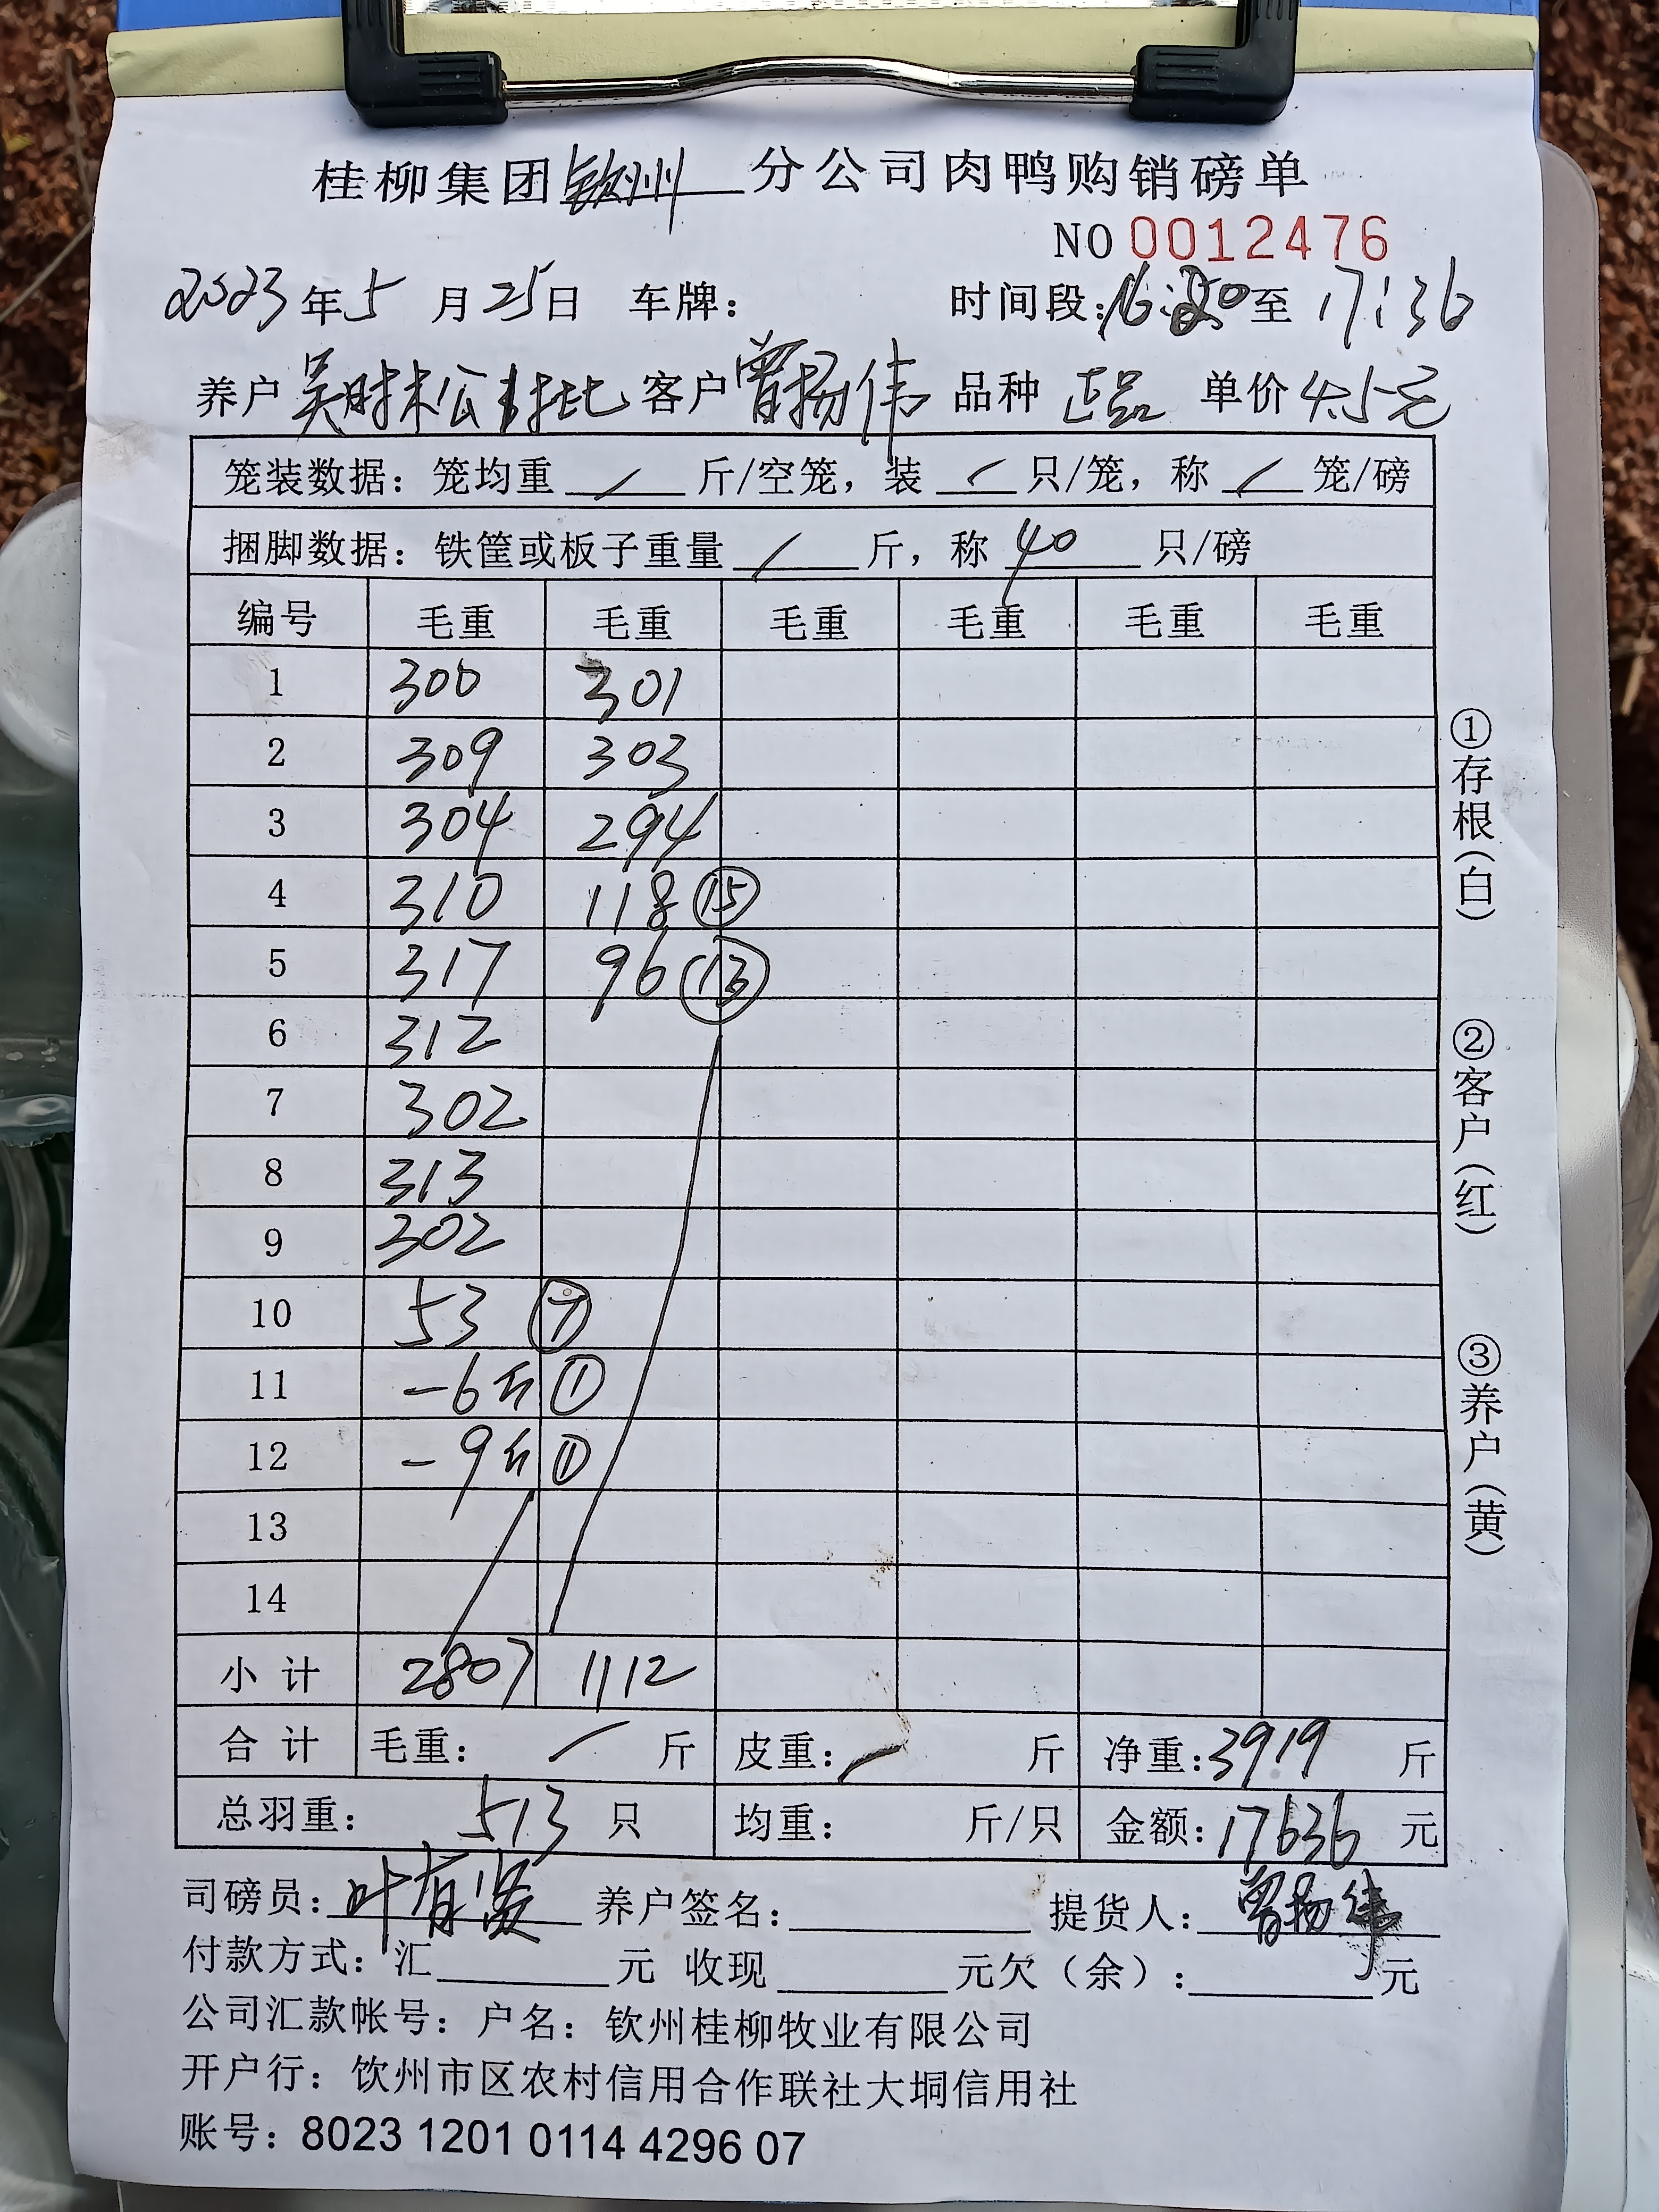 桂柳集团钦州分公司肉鸭购销磅单
NO 0012476
2023年5月25日 车牌： 时间段：16:20至17:36
养户 吴时 公 客户 曾扬伟 品种 正品 单价 4.5元
笼装数据：笼均重 / 斤/空笼，装 / 只/笼，称 / 笼/磅
捆脚数据：铁筐或板子重量 / 斤，称 40 只/磅
编号 毛重 毛重 毛重 毛重 毛重 毛重
1 300 301
2 309 303
3 304 294
4 310 118 ⑮
5 317 96 ⑬
6 312
7 302
8 313
9 302
10 53 ⑦
11 -6斤 ①
12 -9斤 ①
13
14
小计 2807 1112
合计 毛重： / 斤 皮重： / 斤 净重：3919 斤
总羽重： 513 只 均重： 斤/只 金额：17636 元
司磅员：叶有贤 养户签名： 提货人：曾扬伟
付款方式：汇 元 收现 元欠（余）： 元
公司汇款帐号：户名：钦州桂柳牧业有限公司
开户行：钦州市区农村信用合作联社大垌信用社
账号：8023 1201 0114 4296 07
①存根（白）
②客户（红）
③养户（黄）